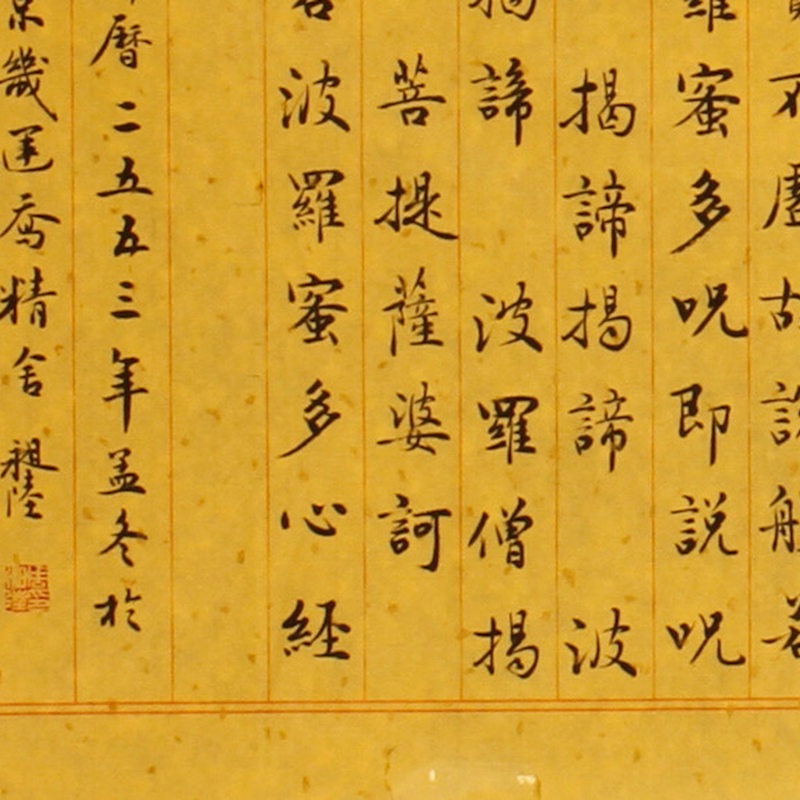 不虛故說般若
羅蜜多呪即說呪
揭諦揭諦 波
揭諦 波羅僧揭
菩提薩婆訶
若波羅蜜多心経
曆二五五三年孟冬於
京畿運喬精舍 祖陸